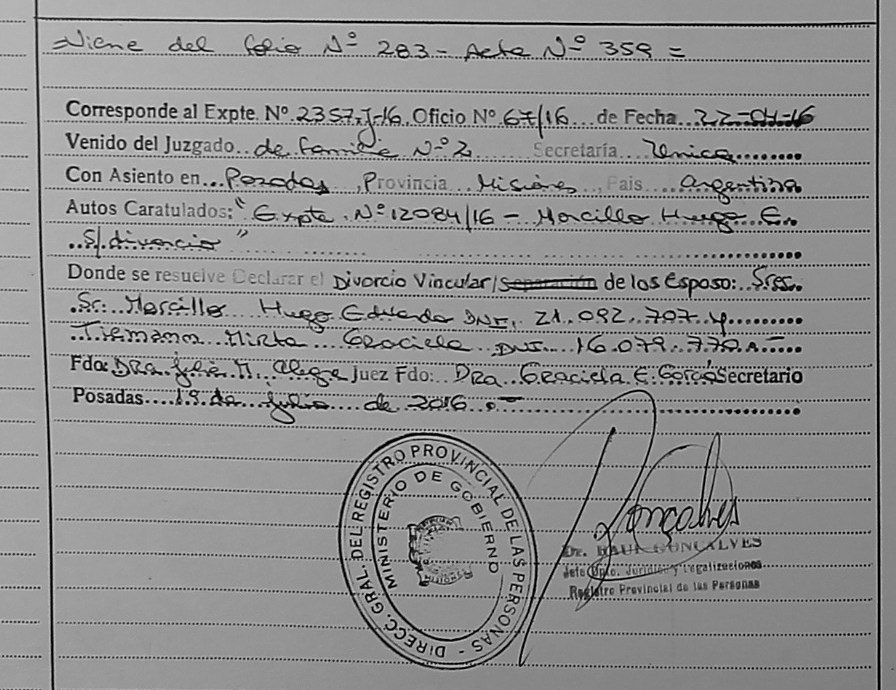 =Viene del folio Nº 283 - Acta Nº 359 =
Corresponde al Expte. Nº 2357-J-16 Oficio Nº 67/16 de Fecha 22-04-16
Venido del Juzgado de Familia Nº 2 Secretaría Unica
Con Asiento en Posadas, Provincia Misiones, Pais Argentina
Autos Caratulados: "Expte. Nº 12084/16 - Morcillo Hugo E.
S/divorcio"
Donde se resuelve Declarar el Divorcio Vincular/separación de los Esposo: Sres.
Sr: Morcillo Hugo Eduardo DNI. 21.092.707 y
Mirta Graciela DNI. 16.079.770.-
Fdo: DRA. M. Juez Fdo: DRA. GRACIELA E. Secretario
Posadas 19 de Julio de 2016.-
DIRECC. GRAL. DEL REGISTRO PROVINCIAL DE LAS PERSONAS -
MINISTERIO DE GOBIERNO
MISIONES
Gonçalves
Dr. RAUL GONCALVES
Jefe Dpto. Jurídico y Legalizaciones
Registro Provincial de las Personas